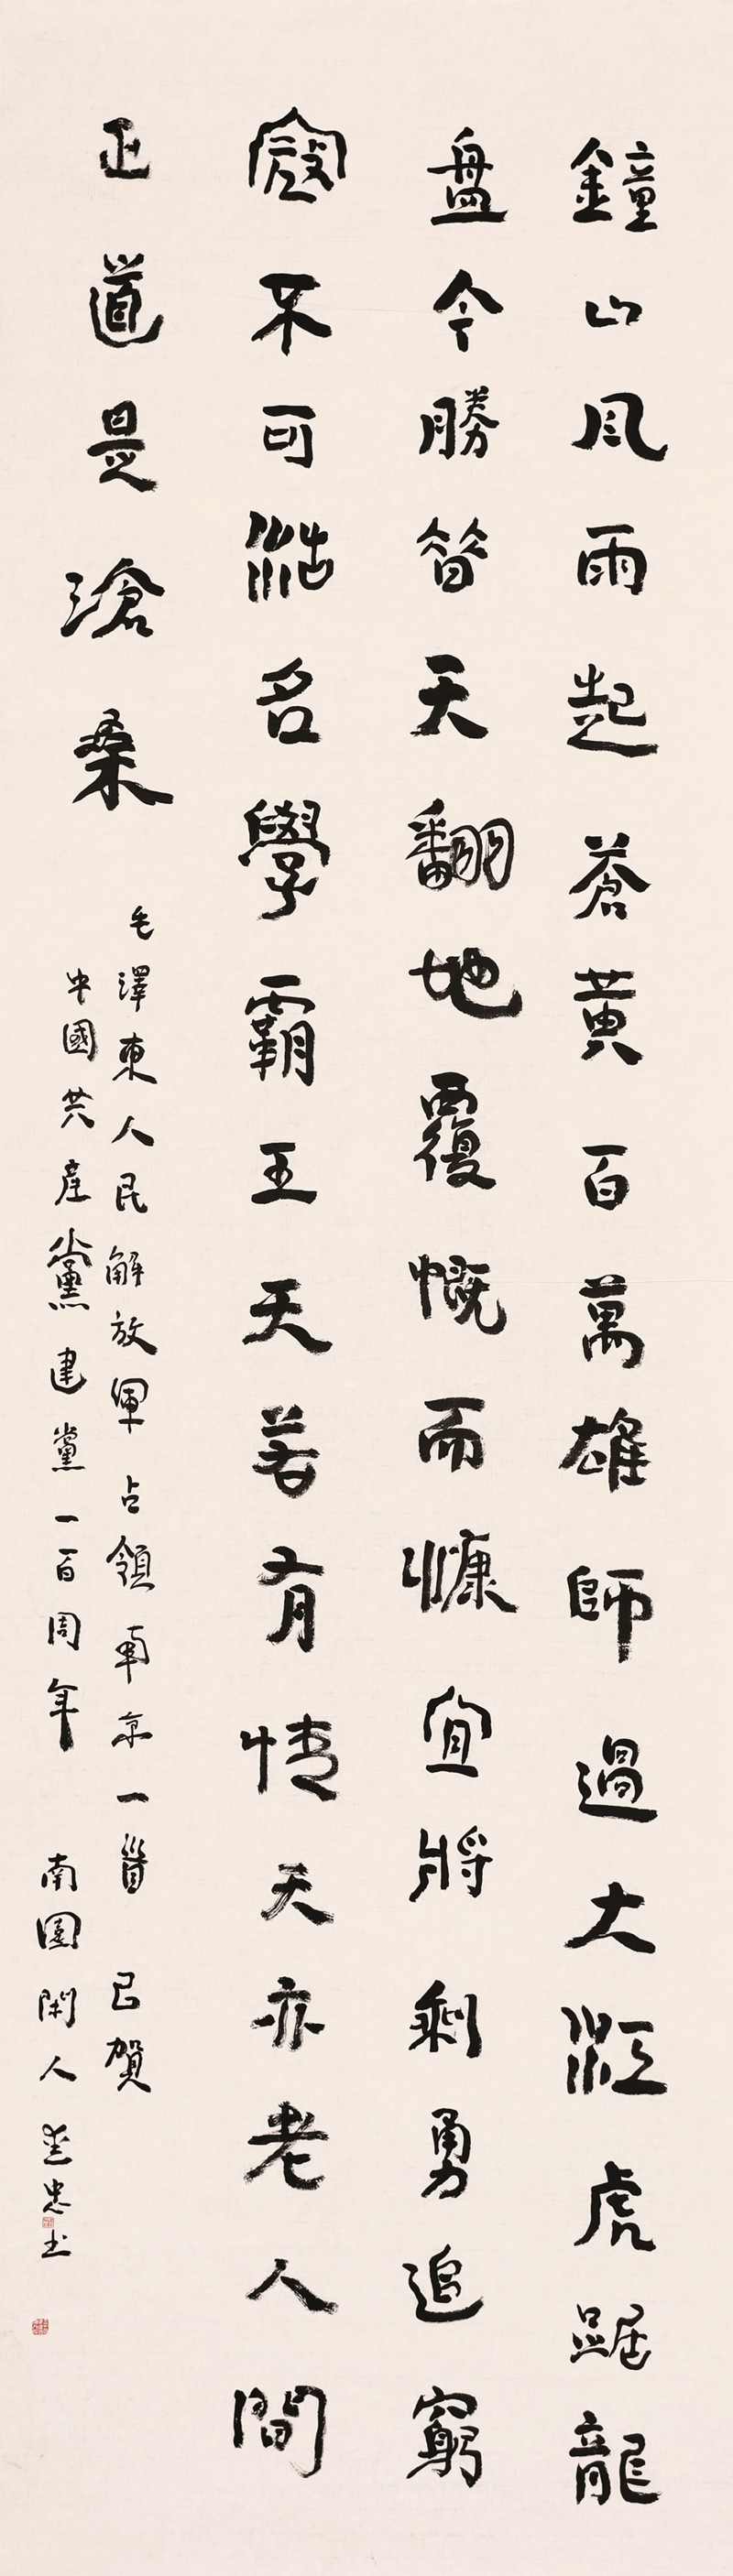 鐘山风雨起蒼黄百萬雄師過大江虎踞龍
盤今勝昔天翻地覆慨而慷宜將剩勇追窮
寇不可沽名學霸王天若有情天亦老人間
正道是滄桑
毛澤東人民解放軍占領南京一首 已賀
中國共產黨建黨一百周年 南園閑人 忠书